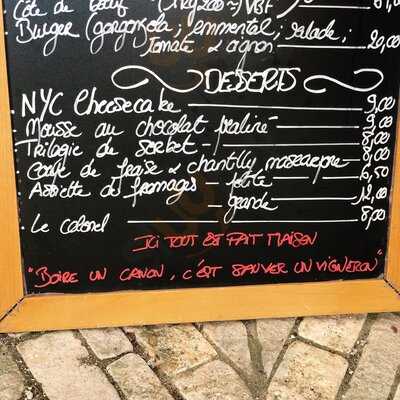 Côte de boeuf
Burger (gorgonzola, emmental, salade,
Tomate & oignon 20,00
DESERTS
. NYC Cheesecake 9,00
Mousse au chocolat praliné 9,00
Trilogie de sorbet 8,00
Coupe de fraise & chantilly mascarpone 8,00
Assiette de fromages - petite 6,50
- grande 12,00
. Le colonel 8,00
ICI TOUT EST FAIT MAISON
"BOIRE UN CANON, C'EST SAUVER UN VIGNERON"